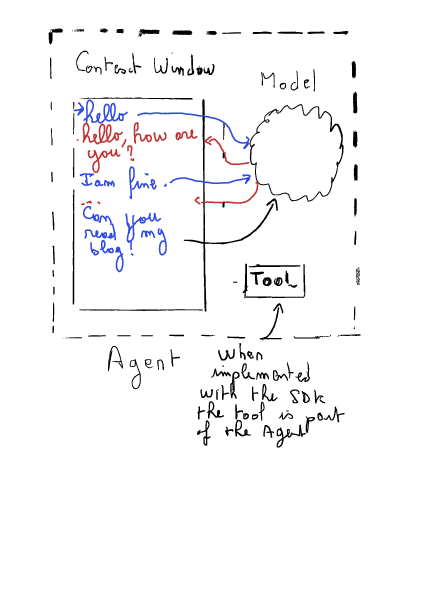 Context Window
Model
hello
hello, how are
you?
I am fine.
...
Can you
read my
blog?
Tool
Agent
When
implemented
with the SDK
the tool is part
of the Agent